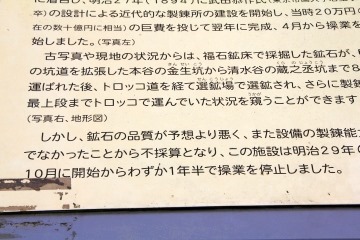 に着目し、明治27年(1894)に武田恭作氏(東京
卒)の設計による近代的な製錬所の建設を開始し、当時20万円
在の数十億円に相当)の巨費を投じて翌年に完成、4月から操業を
始しました。(写真左)
古写真や現地の状況からは、福石鉱床で採掘した鉱石が、
の坑道を拡張した本谷の金生坑から清水谷の蔵之丞坑まで8
運ばれた後、トロッコ道を経て選鉱場で選鉱され、さらに製錬
最上段までトロッコで運んでいた状況を窺うことができます
(写真右、地形図)
しかし、鉱石の品質が予想より悪く、また設備の製錬能
でなかったことから不採算となり、この施設は明治29年(
10月に開始からわずか1年半で操業を停止しました。